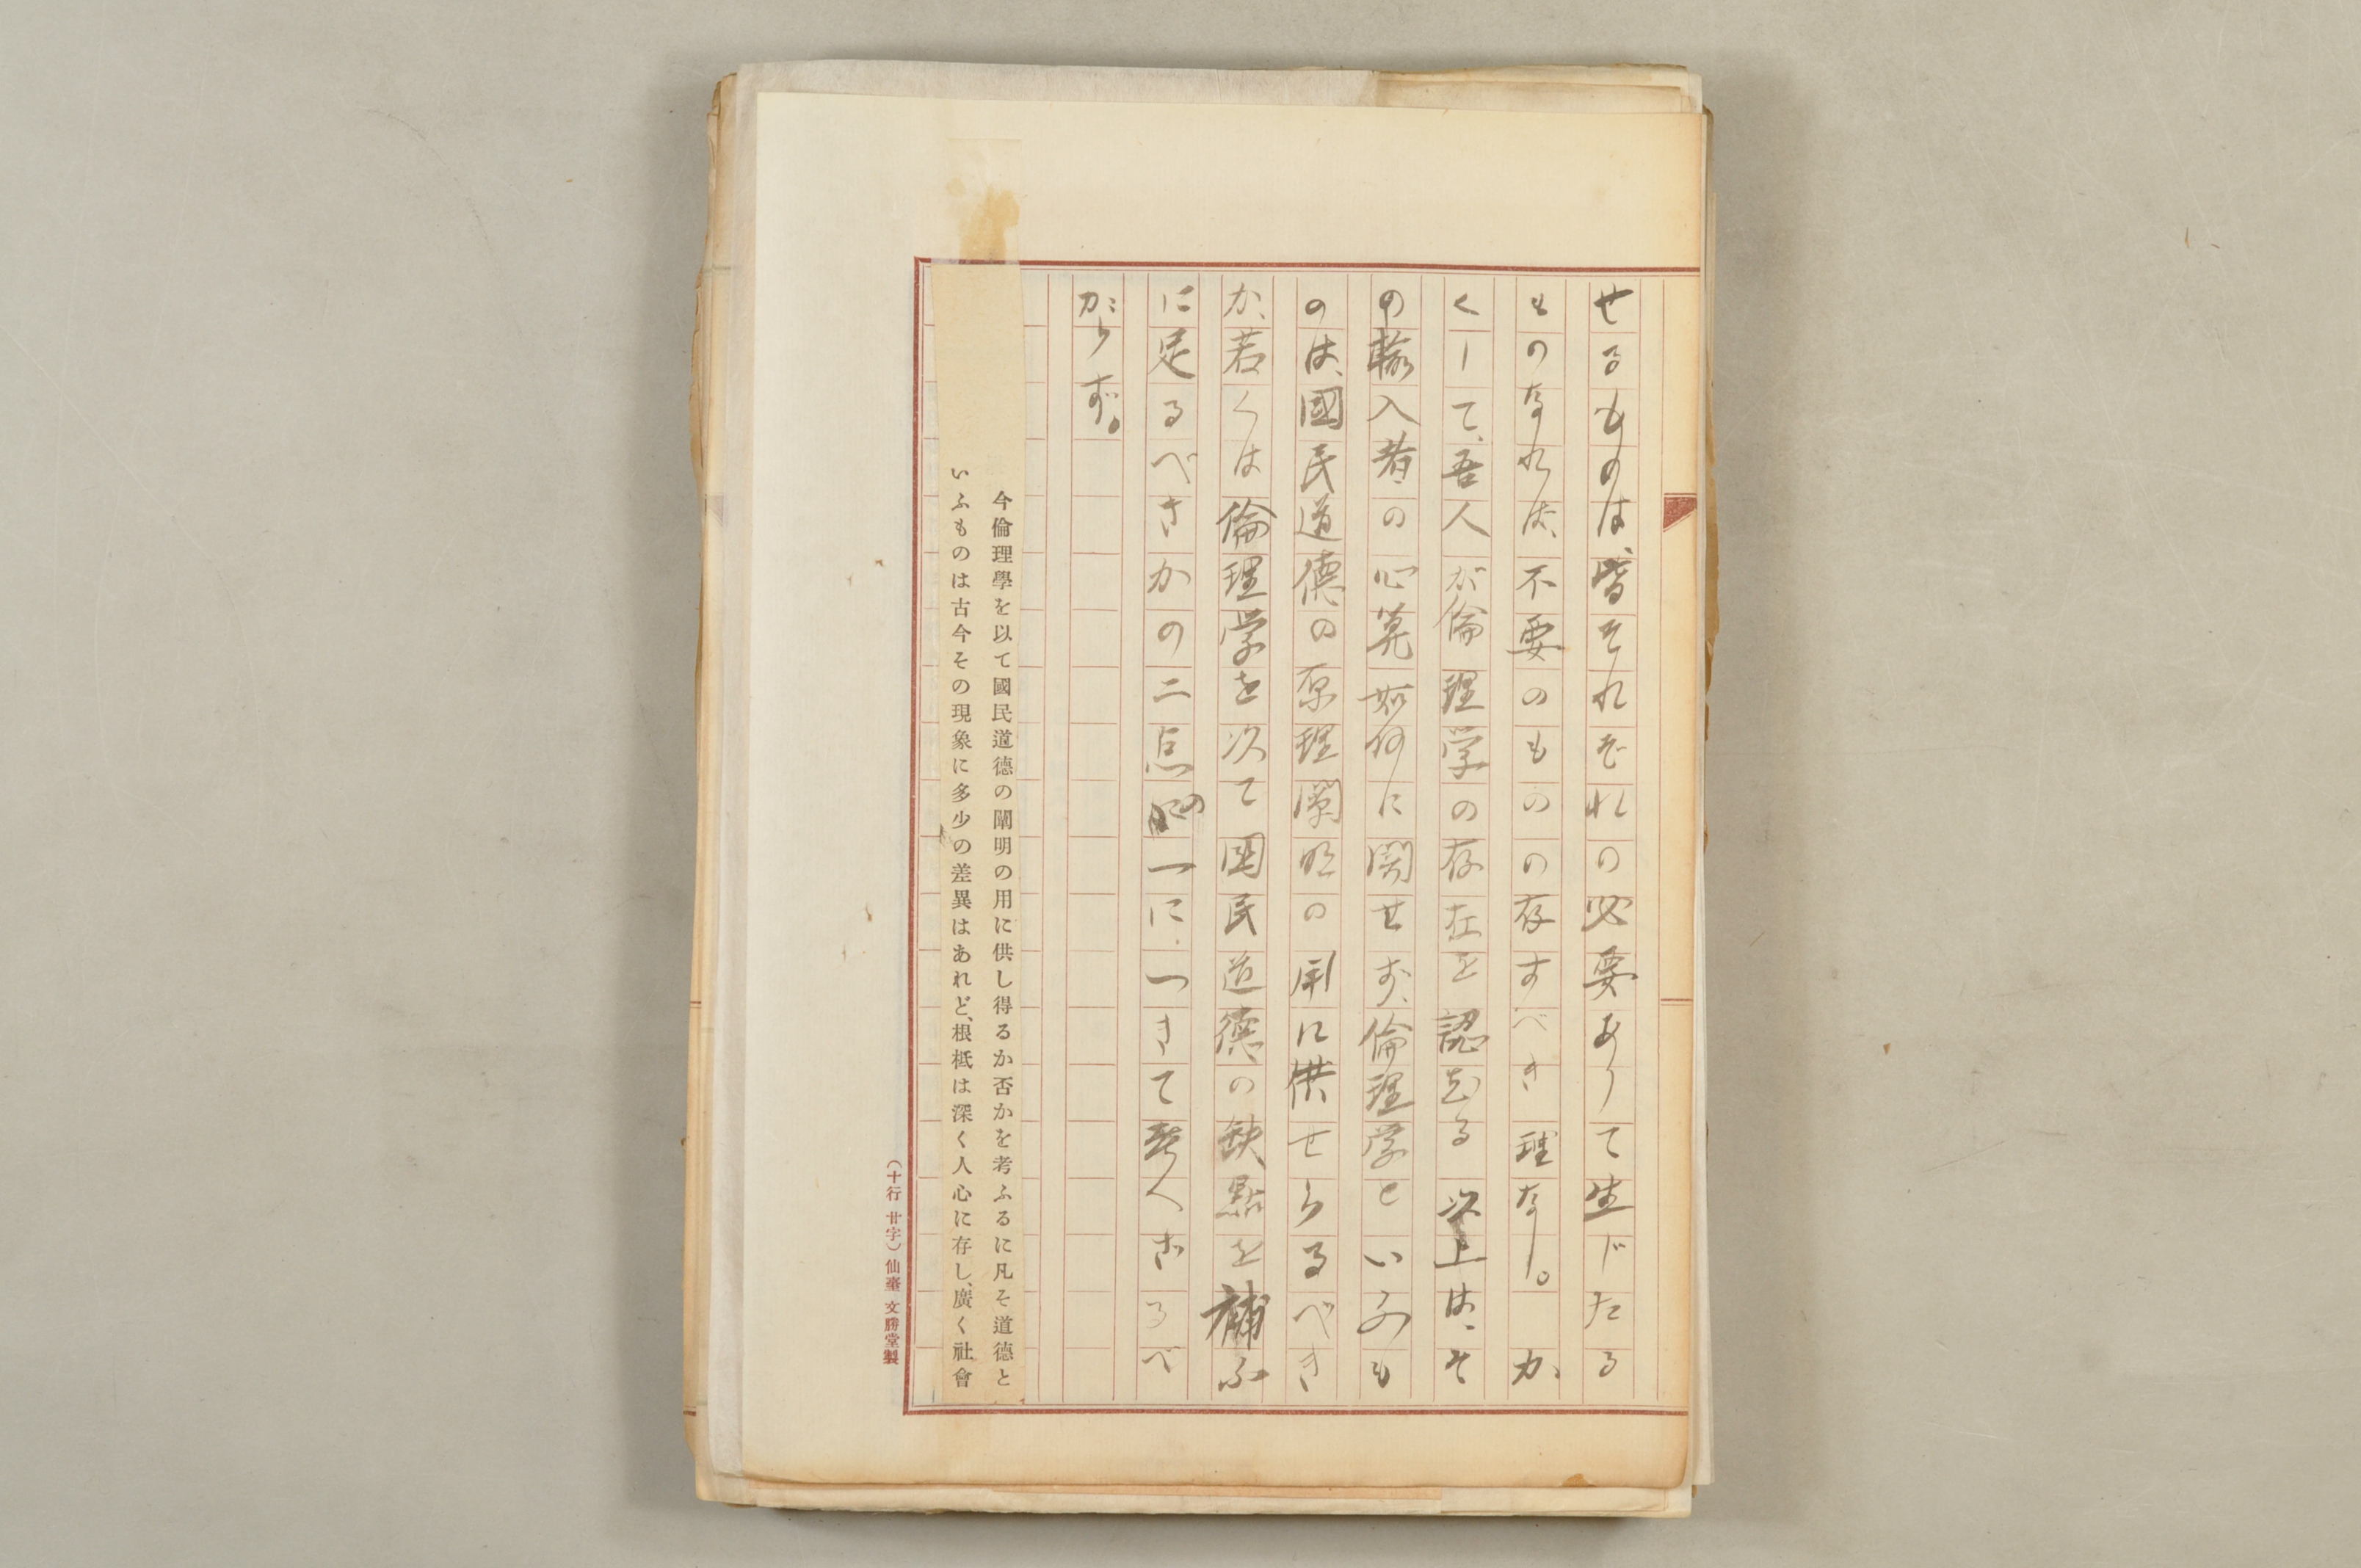 せるものは、皆それぞれの必要ありて生じたる
ものなれは、不要のものの存すべき理なし。か
くして、吾人が倫理学の存在を認むる以上は、そ
の輸入者の心算如何に関せず、倫理学といふも
のは、國民道德の原理闡明の用に供せらるべき
か、若くは倫理学を以て国民道徳の缺點を補ふ
に足るべきかの二点の一につきて考へざるべ
からず。
今倫理學を以て國民道德の闡明の用に供し得るか否かを考ふるに凡そ道德と
いふものは古今その現象に多少の差異はあれど、根柢は深く人心に存し、廣く社會
(十行廿字)仙臺文勝堂製